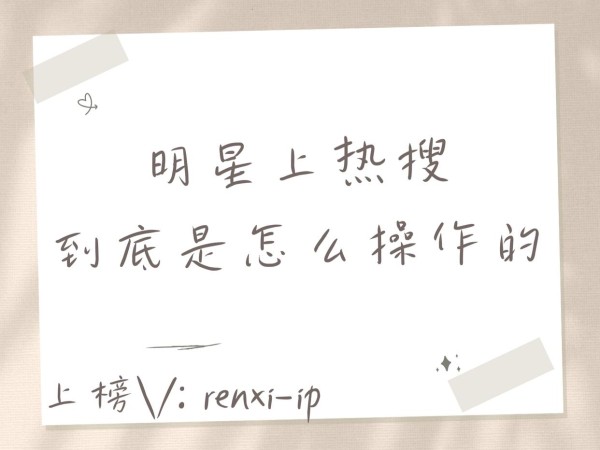 明星上热搜
到底是怎么操作的
上榜\/: renxi-ip